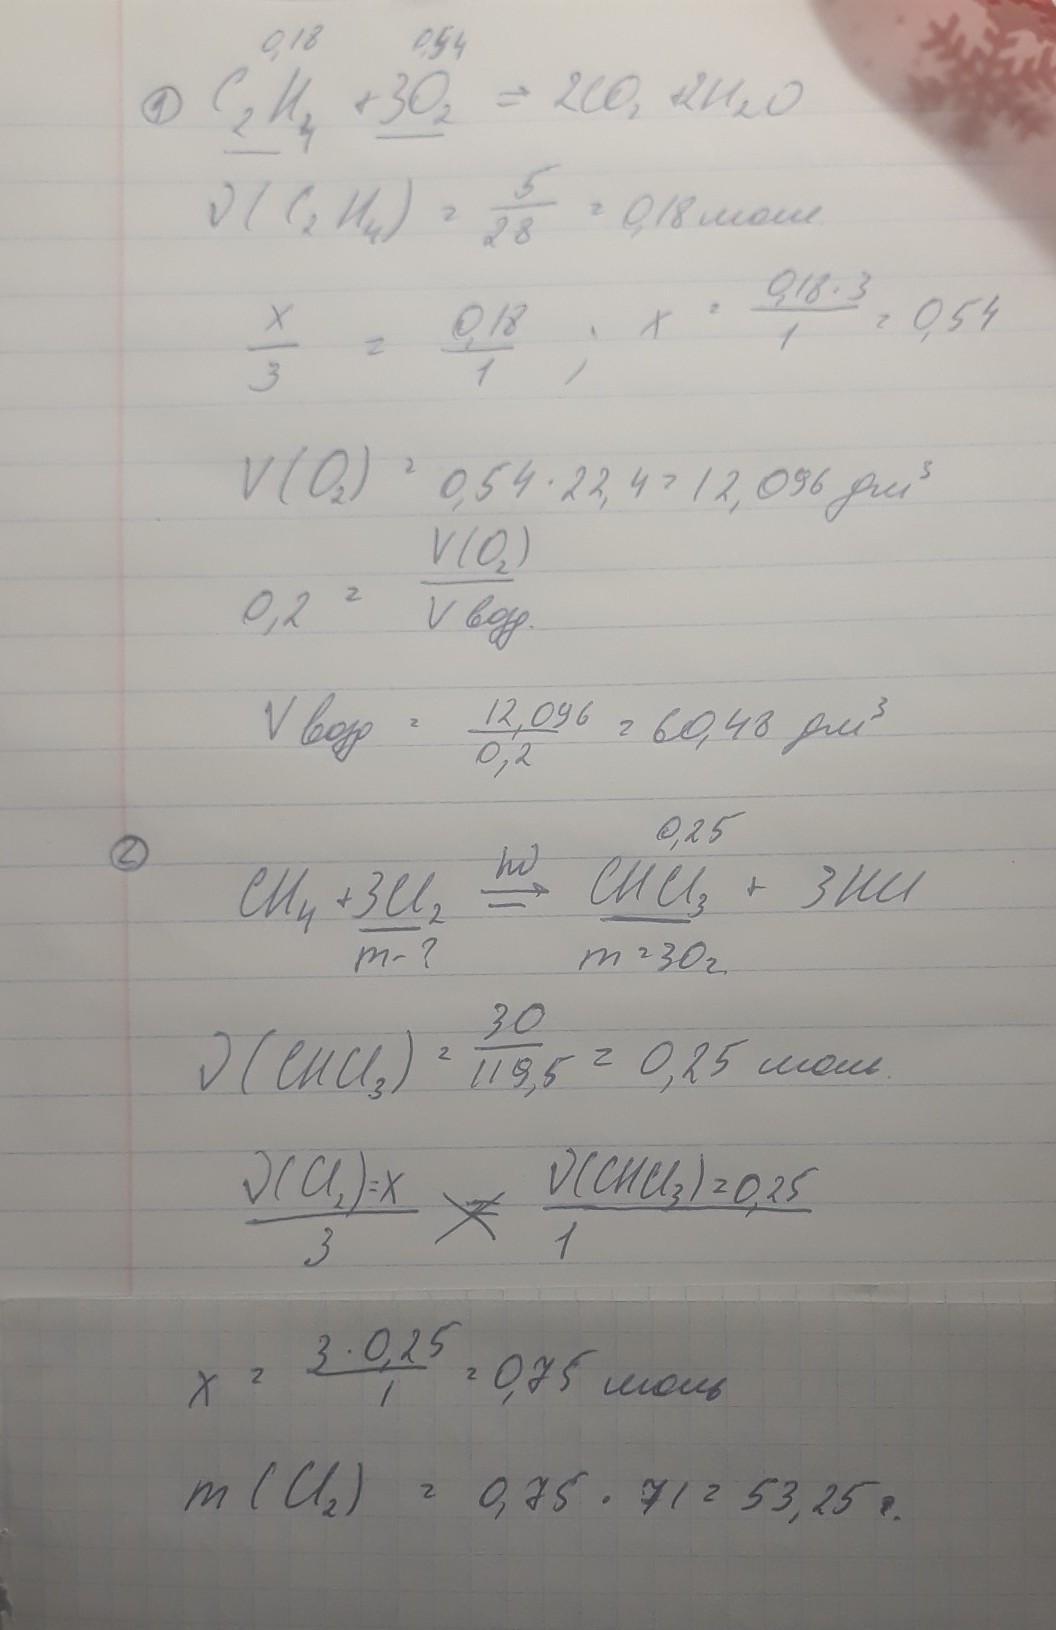 0,18 0,54
① C₂H₄ + 3O₂ = 2CO₂ + 2H₂O
ν(C₂H₄) = 5/28 = 0,18 моль
x/3 = 0,18/1 ; x = 0,18·3/1 = 0,54
V(O₂) = 0,54 · 22,4 = 12,096 дм³
0,2 = V(O₂)/V возд.
V возд = 12,096/0,2 = 60,48 дм³
② 0,25
CH₄ + 3Cl₂ hν CHCl₃ + 3HCl
m - ? m = 30 г.
ν(CHCl₃) = 30/119,5 = 0,25 моль.
ν(Cl₂) = x/3 = ν(CHCl₃) = 0,25/1
x = 3 · 0,25/1 = 0,75 моль
m(Cl₂) = 0,75 · 71 = 53,25 г.